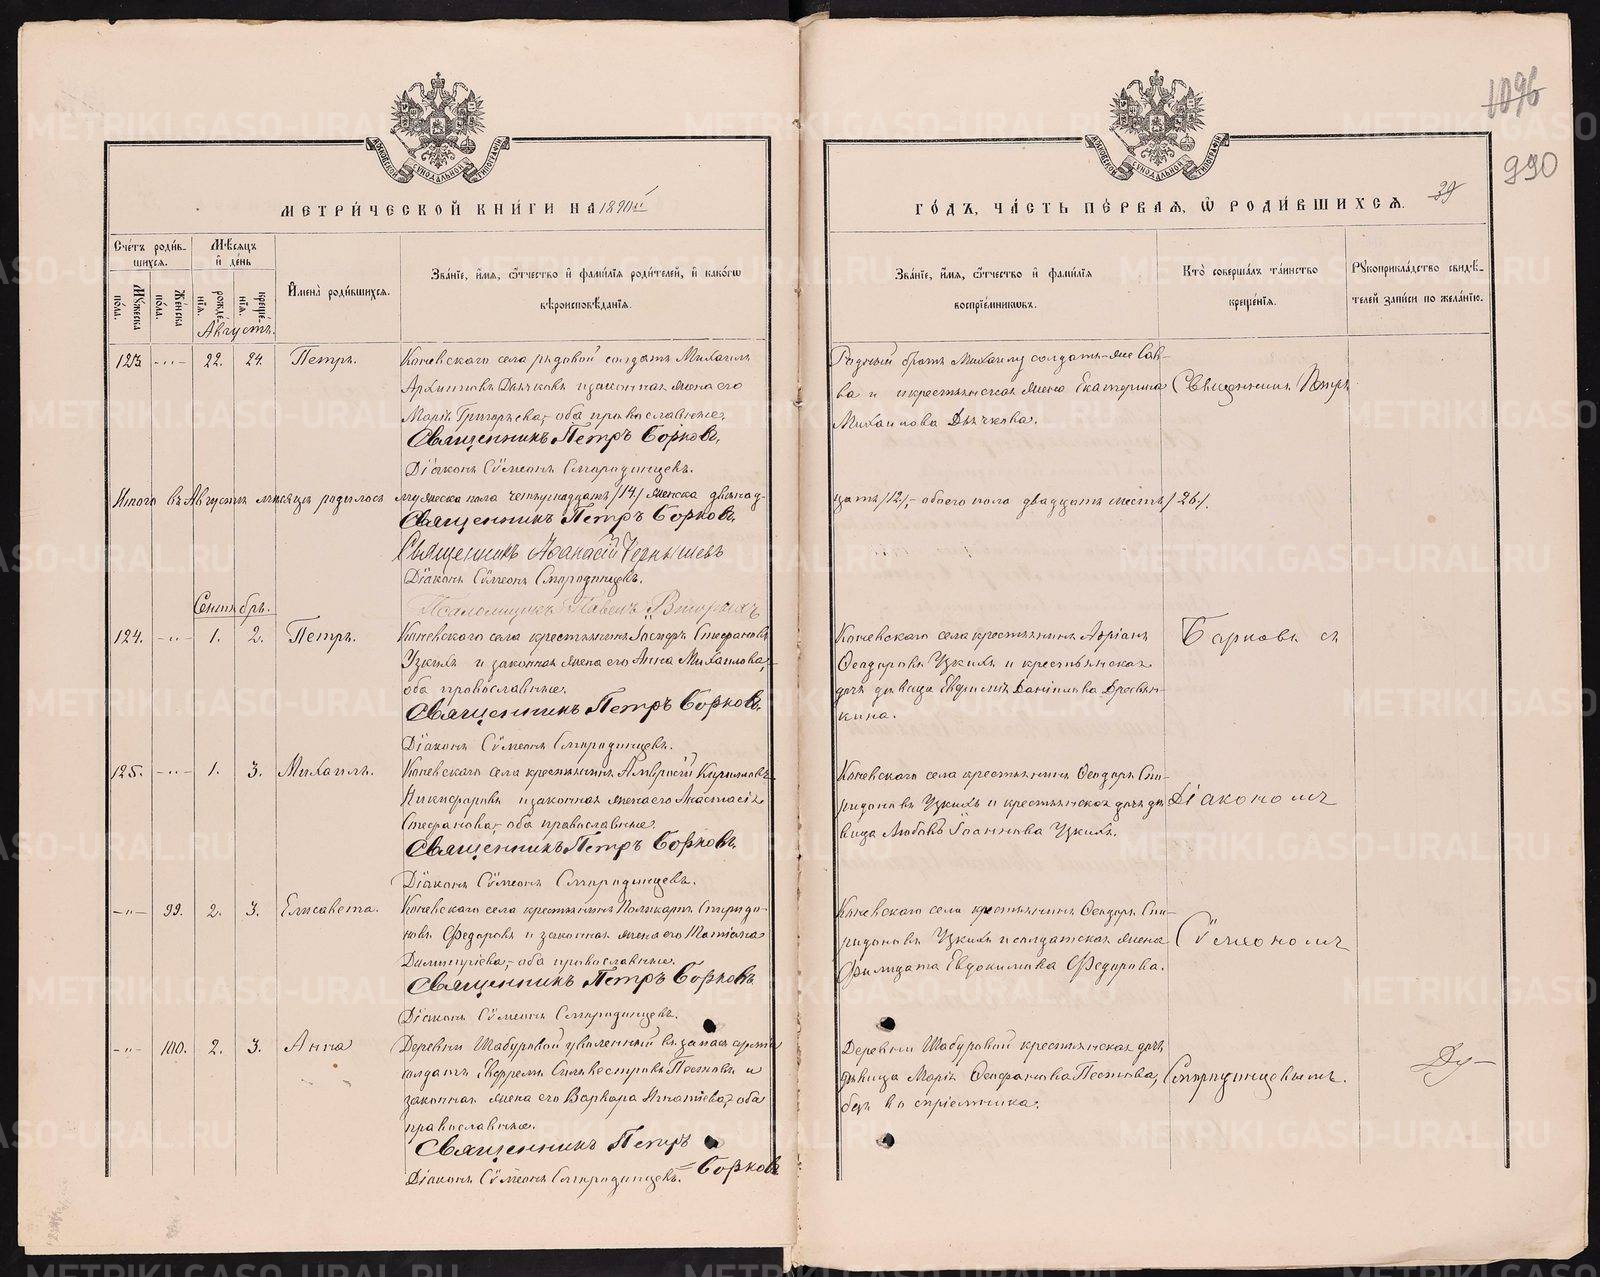 1096
990
МЕТРИЧЕСКОЙ КНИГИ НА 1890й
ГОДЪ, ЧАСТЬ ПЕРВАЯ, Ѿ РОДИВШИХСЯ.
39
Счетъ родив-
шихся.
Мѣсяцъ
и день
Имена родившихся.
Званіе, имя, отчество и фамилія родителей, и какогѡ
вѣроисповѣданія.
Мужеска пола.
Женска пола.
рожденія.
крещенія.
Званіе, имя, отчество и фамилія
воспріемниковъ.
Кто совершалъ таинство
крещенія.
Рукоприкладство свидѣ-
телей записи по желанію.
Августъ.
123. -"- 22. 24. Петръ.
Коневскаго села рядовой солдатъ Михаилъ
Архиповъ Дьячковъ и законная жена его
Марія Григорьева, оба православные.
Священникъ Петръ Борковъ.
Діаконъ Сѵмеонъ Смородинцевъ.
Родный братъ Михаилу солдатъ-же Сав-
ва и крестьянская жена Екатерина
Михаилова Дьячкова.
Священникъ Петръ
Итого въ Августѣ мѣсяцѣ родилось мужеска пола четырнадцать /14/ женска двѣнад-
цать /12/, - обоего пола двадцать шесть / 26/.
Священникъ Петръ Борковъ.
Священникъ Аѳанасій Чернышевъ
Діаконъ Сѵмеонъ Смородинцевъ.
Псаломщикъ Павелъ Вторыхъ
Сентябрь.
124. -"- 1. 2. Петръ.
Коневскаго села крестьянинъ Іосифъ Стефановъ
Узкихъ и законная жена его Анна Михаилова,
оба православные.
Священникъ Петръ Борковъ.
Діаконъ Сѵмеонъ Смородинцевъ.
Коневскаго села крестьянинъ Адріанъ
Ѳеодоровъ Узкихъ и крестьянская
дочь дѣвица Евдокія Даніилова
кина.
Борковъ съ
125. -"- 1. 3. Михаилъ.
Коневскаго села крестьянинъ Амвросій Кириловъ
Никифоровъ и законная жена его Анастасія
Стефанова, оба православные.
Священникъ Петръ Борковъ.
Діаконъ Сѵмеонъ Смородинцевъ.
Коневскаго села крестьянинъ Ѳеодоръ Спи-
ридоновъ Узкихъ и крестьянская дочь дѣ-
вица Любовь Іоаннова Узкихъ.
Діакономъ
-"- 99. 2. 3. Елисавета.
Коневскаго села крестьянинъ Поликарпъ Спиридо-
новъ Федоровъ и законная жена его Татіана
Димитріева, оба православные.
Священникъ Петръ Борковъ
Діаконъ Сѵмеонъ Смородинцевъ.
Коневскаго села крестьянинъ Ѳеодоръ Спи-
ридоновъ Узкихъ и солдатская жена
Филицата Евдокимова Федорова.
Сѵмеономъ
-"- 100. 2. 3. Анна
Деревни Шабуровой уволенный въ запасъ арміи
солдатъ Сильвестровъ Пестовъ и
законная жена его Варвара Игнатіева, оба
православные.
Священникъ Петръ
Борковъ
Діаконъ Сѵмеонъ Смородинцевъ.
Деревни Шабуровой крестьянская дочь
дѣвица Марія Пестова,
безъ воспріемника.
Смородинцевымъ.